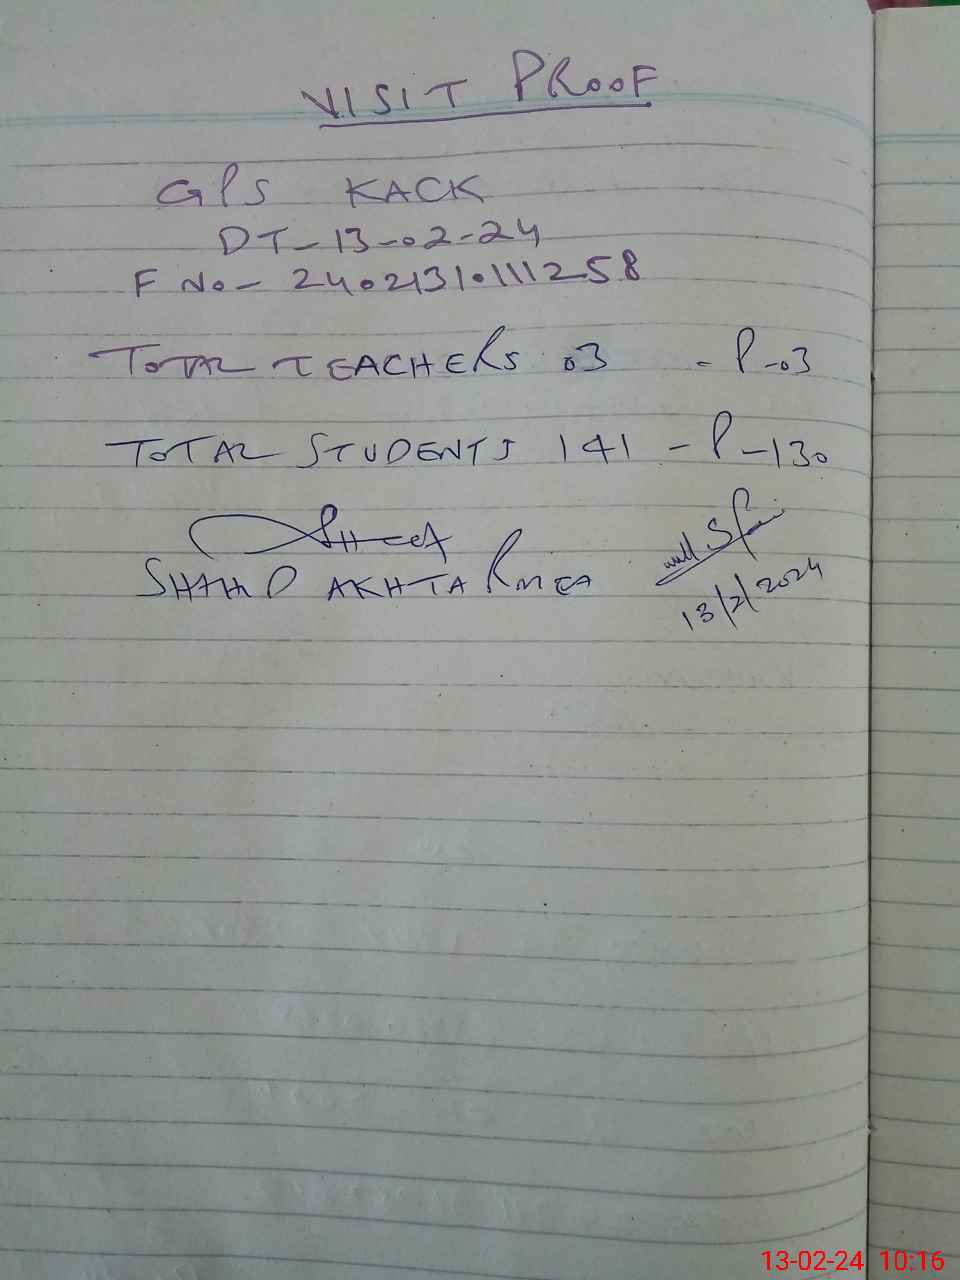 VISIT PROOF
GPS KACK
DT-13-02-24
F No- 240213101111258
TOTAL TEACHERS 03 - P-03
TOTAL STUDENTS 141 - P-130
SHAHID AKHTAR MEA
13/2/2024
13-02-24 10:16